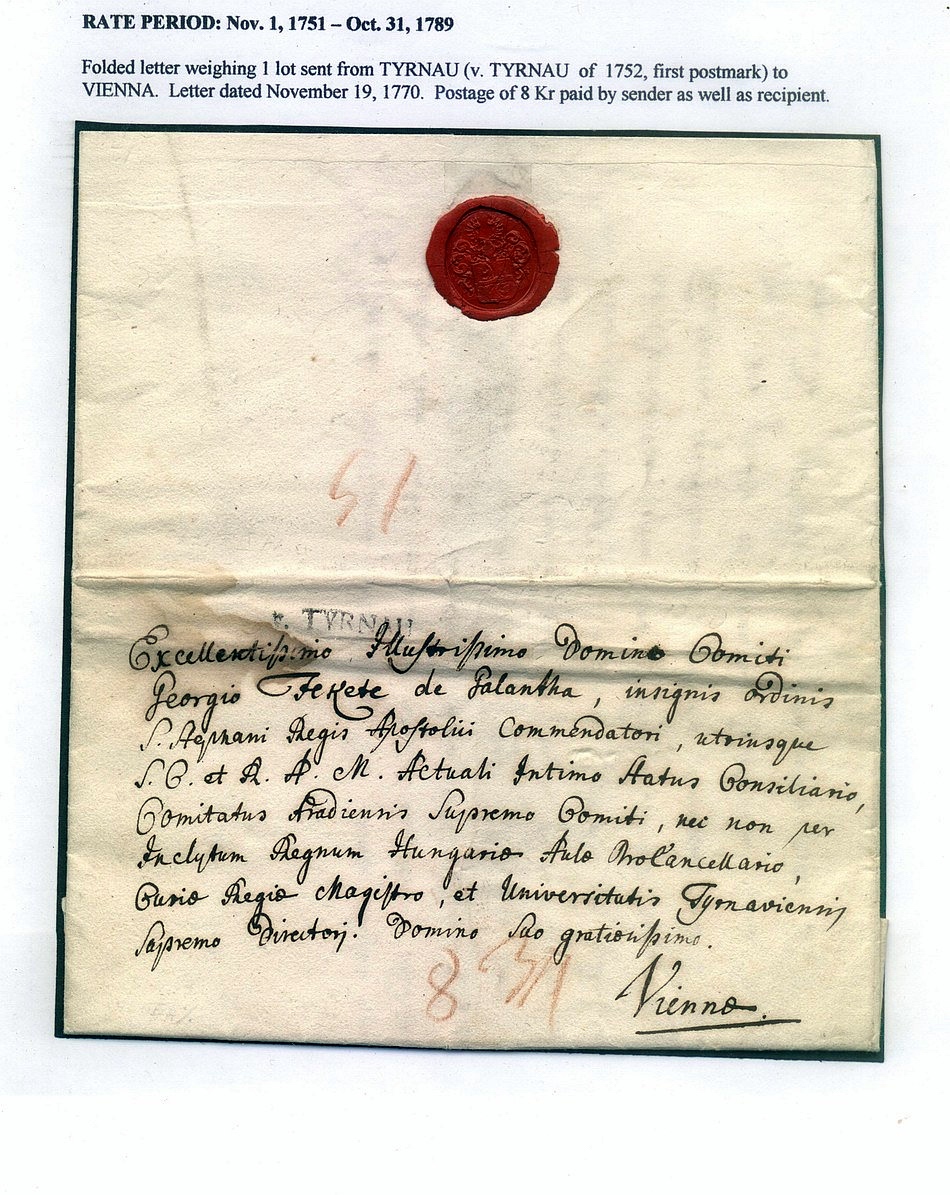 RATE PERIOD: Nov. 1, 1751 – Oct. 31, 1789
Folded letter weighing 1 lot sent from TYRNAU (v. TYRNAU of 1752, first postmark) to
VIENNA. Letter dated November 19, 1770. Postage of 8 Kr paid by sender as well as recipient.
v. TYRNAU
Excellentißimo Illustrißimo Domino Comiti
Georgio Fekete de Galantha, insignis ordinis
S. Stephani Regis Apostolici Commendatori, utriusque
S. C. et R. A. M. Actuali Intimo Status Consiliario,
Comitatus Aradiensis Supremo Comiti, nec non per
Inclytum Regnum Hungariæ Aulæ ProCancellario,
Curiæ Regiæ Magistro, et Universitatis Tyrnaviensis
Supremo Directori. Domino Suo gratiosißimo.
8
Viennæ.